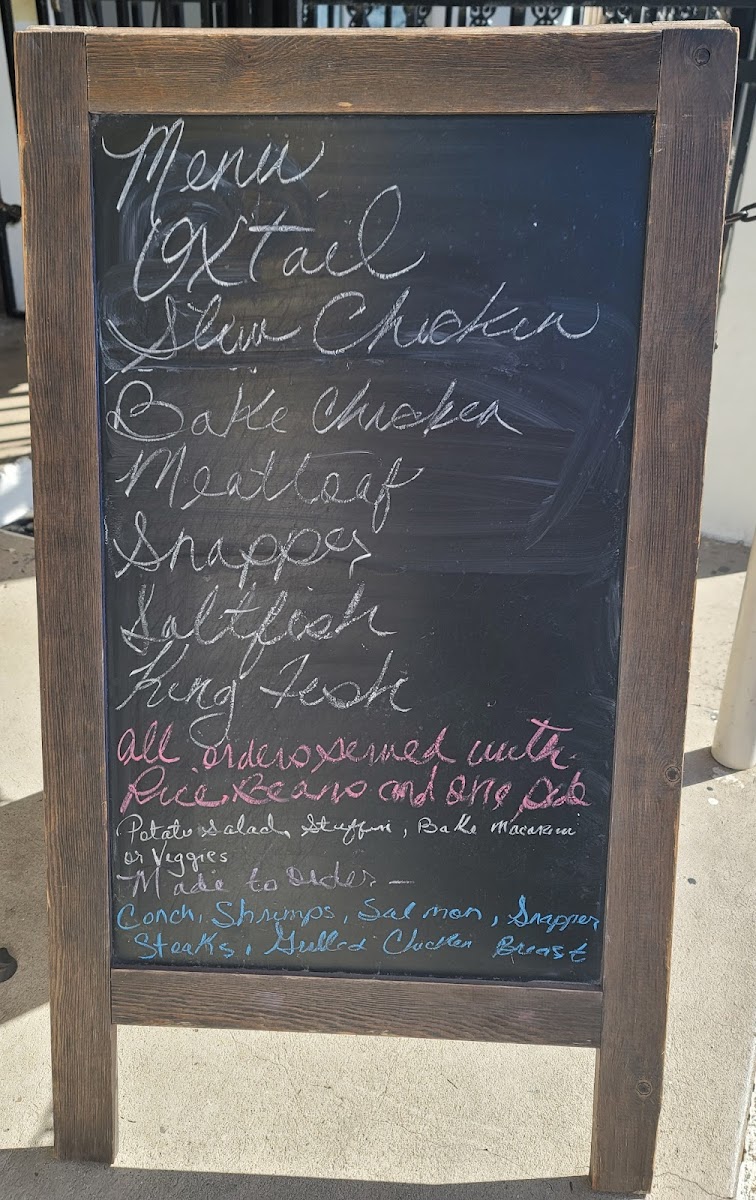 Menu
Oxtail
Stew Chicken
Bake Chicken
Meatloaf
Snapper
Saltfish
King Fish
all orders served with
Rice Beans and one side
Potato Salad, Stuffin, Bake macaroni
or Veggies
Made to order -
Conch, Shrimps, Salmon, Snapper
Steaks, Grilled Chicken Breast